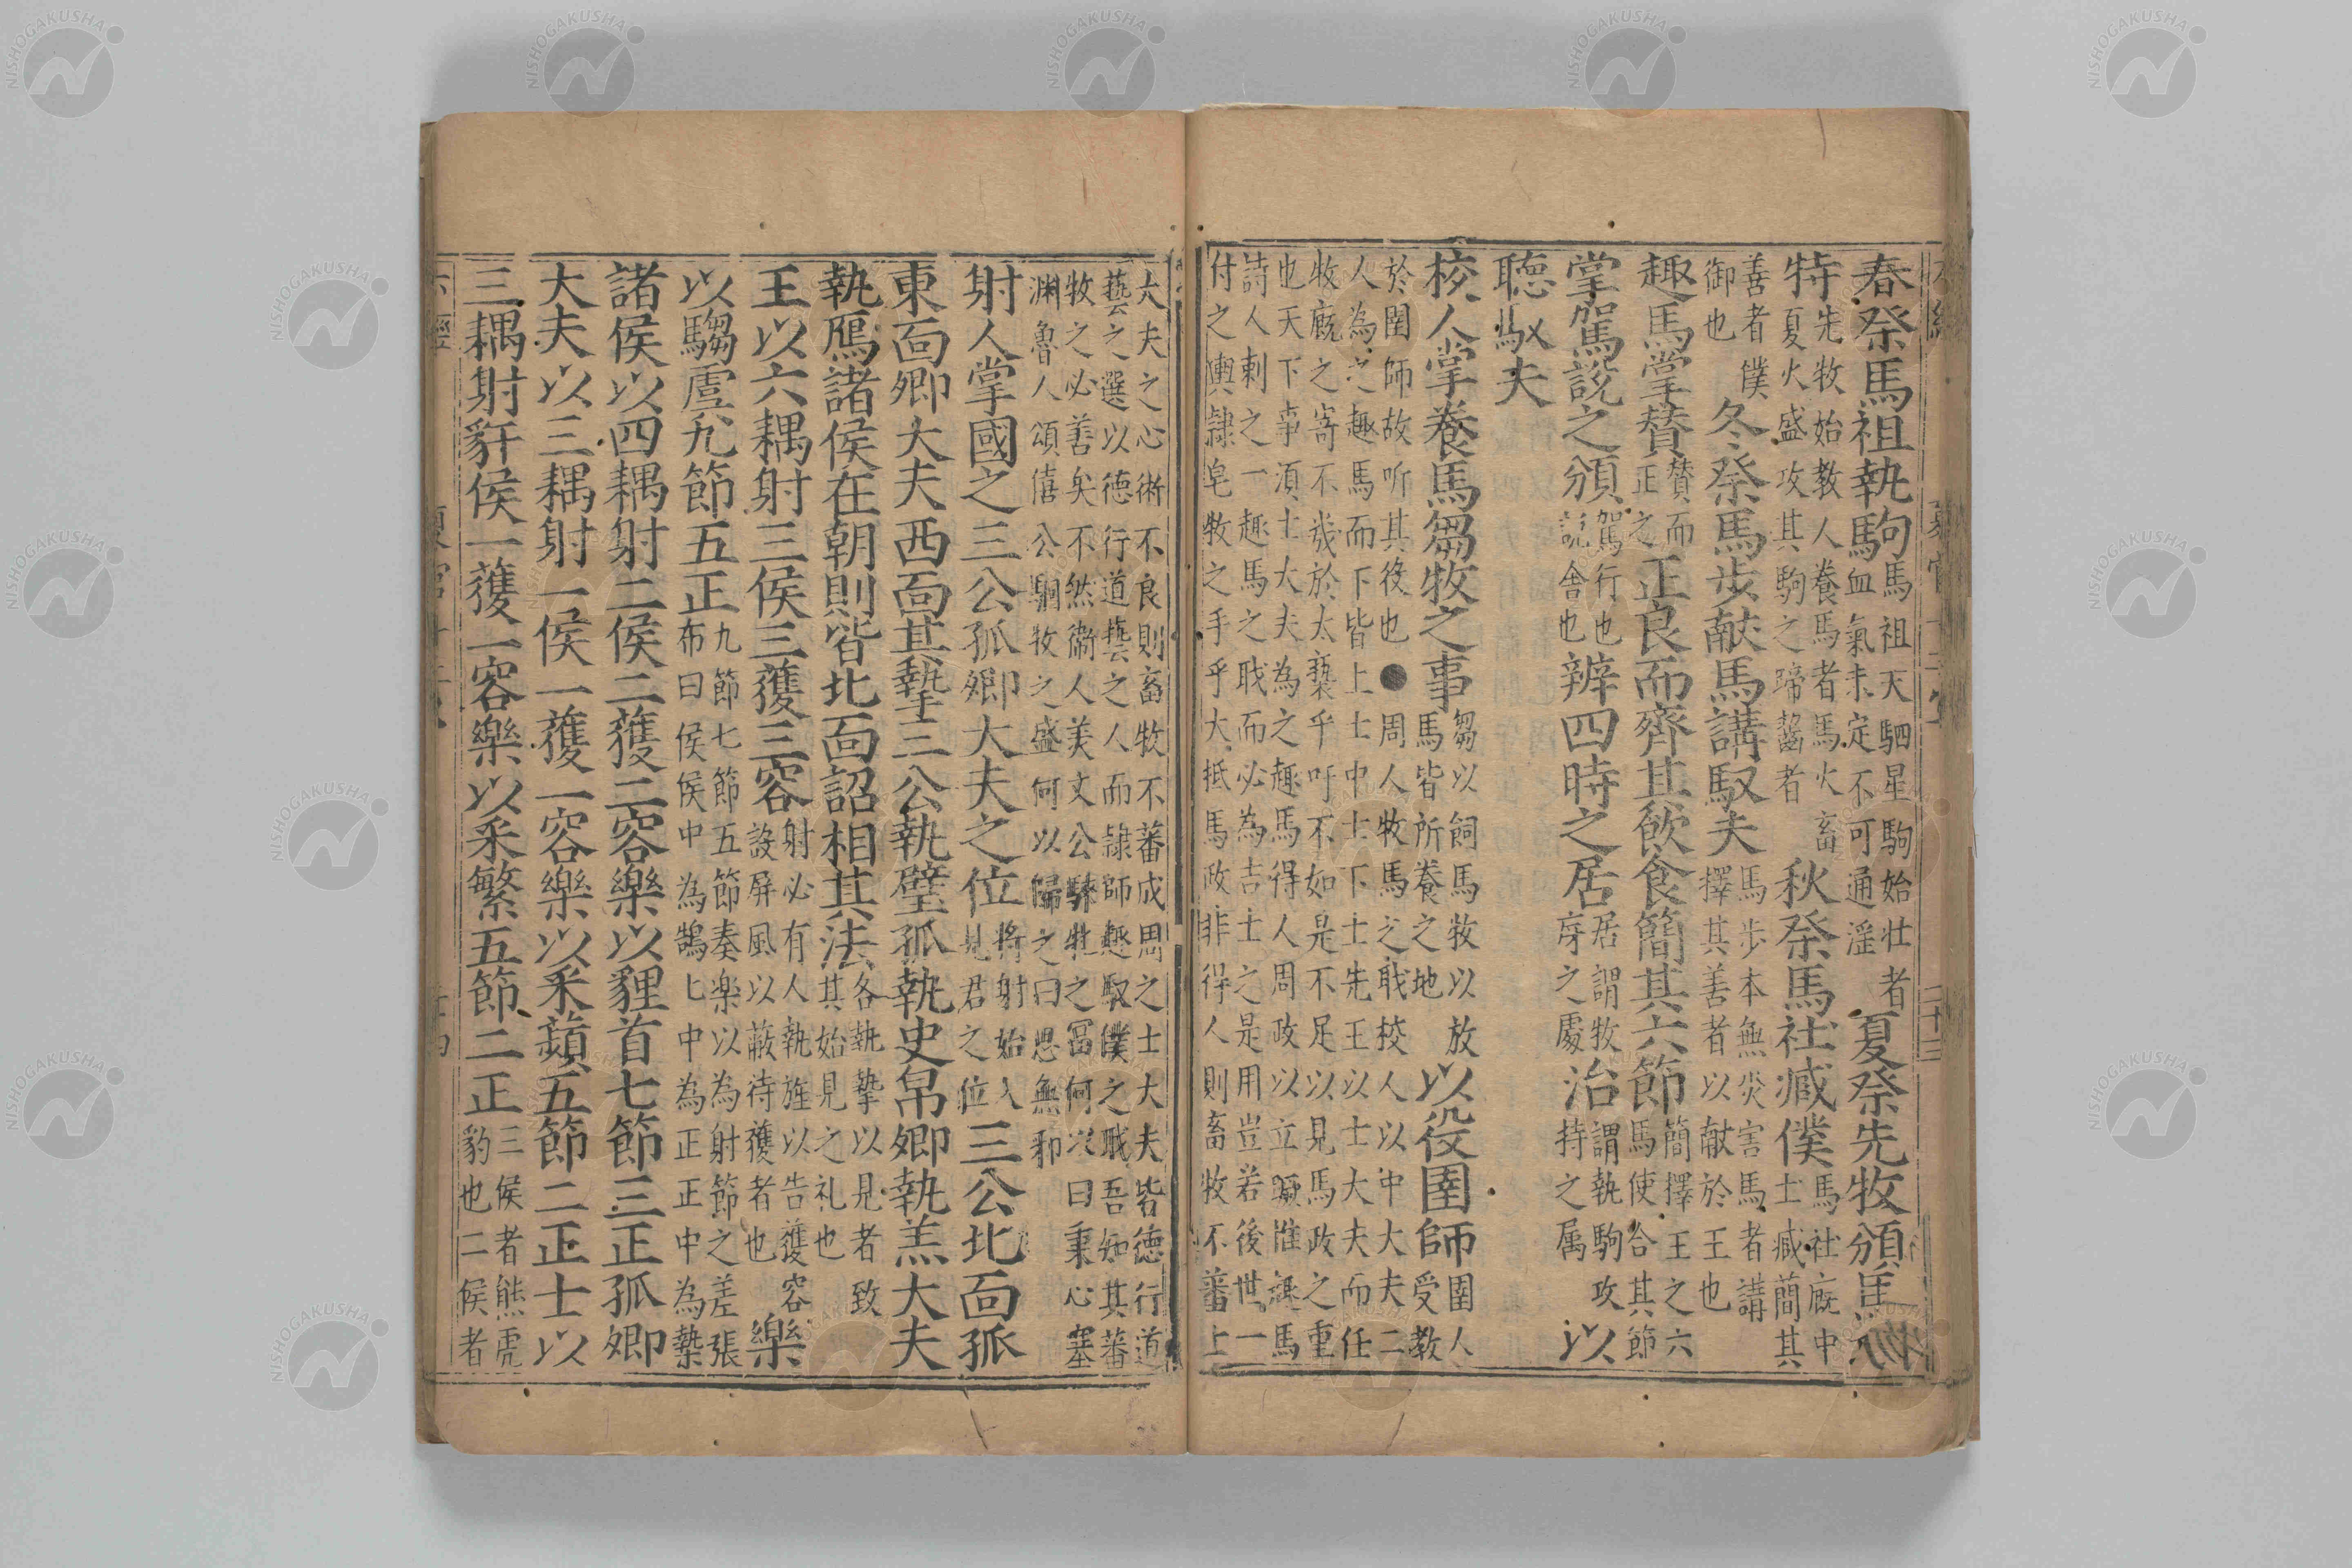 春祭馬祖執駒馬祖天駟星駒始壮者血氣未定不可通淫夏祭先牧頒馬攻
特先牧始教人養馬者馬火畜夏火盛攻其駒之蹄齧者秋祭馬社臧僕馬社廐中士臧簡其
善者僕御也冬祭馬步献馬講馭夫馬步本無災害馬者講擇其善者以献於王也
趣馬掌賛賛而正之正良而齊其飲食簡其六節簡擇王之六馬使合其節
掌駕説之頒駕行也説舍也辨四時之居居謂牧庌之處治謂執駒攻持之属以
聴馭夫
校人掌養馬芻牧之事芻以飼馬牧以放馬皆所養之地以役圉師圉人受教
於圉師故听其役也●周人牧馬之戢校人以中大夫二
人為之趣馬而下皆上士中士下士先王以士大夫而任
牧廐之寄不幾於太褻乎吁不如是不足以見馬政之重
也天下事湏士大夫為之趣馬得人周政以立惟趣馬
詩人剌之一趣馬之戢而必為吉士之是用豈若後世一
付之輿隷皂牧之手乎大抵馬政非得人則畜牧不蕃上
大夫之心術不良則畜牧不蕃成周之士大夫皆德行道
藝之選以德行道藝之人而隷師趣馭僕之職吾知其蕃
牧之必善矣不然衞人美文公騋牝之冨何以曰秉心塞
淵魯人頌僖公駉牧之盛何以歸之曰思無邪
射人掌國之三公孤卿大夫之位將射始入見君之位三公北面孤
東面卿大夫西面其摯三公執璧孤執皮帛卿執羔大夫
執鴈諸侯在朝則皆北面詔相其法各執摯以見者致其始見之礼也
王以六耦射三侯三獲三容射必有人執旌以告獲容設屏風以蔽待獲者也樂
以騶虞九節五正九節七節五節奏楽以為射節之差張布曰侯侯中為鵠七中為正正中為槷
諸侯以四耦射二侯二獲二容樂以貍首七節三正孤卿
大夫以三耦射一侯一獲一容樂以采蘋五節二正士以
三耦射豻侯一獲一容樂以采繁五節二正三侯者熊虎豹也二侯者